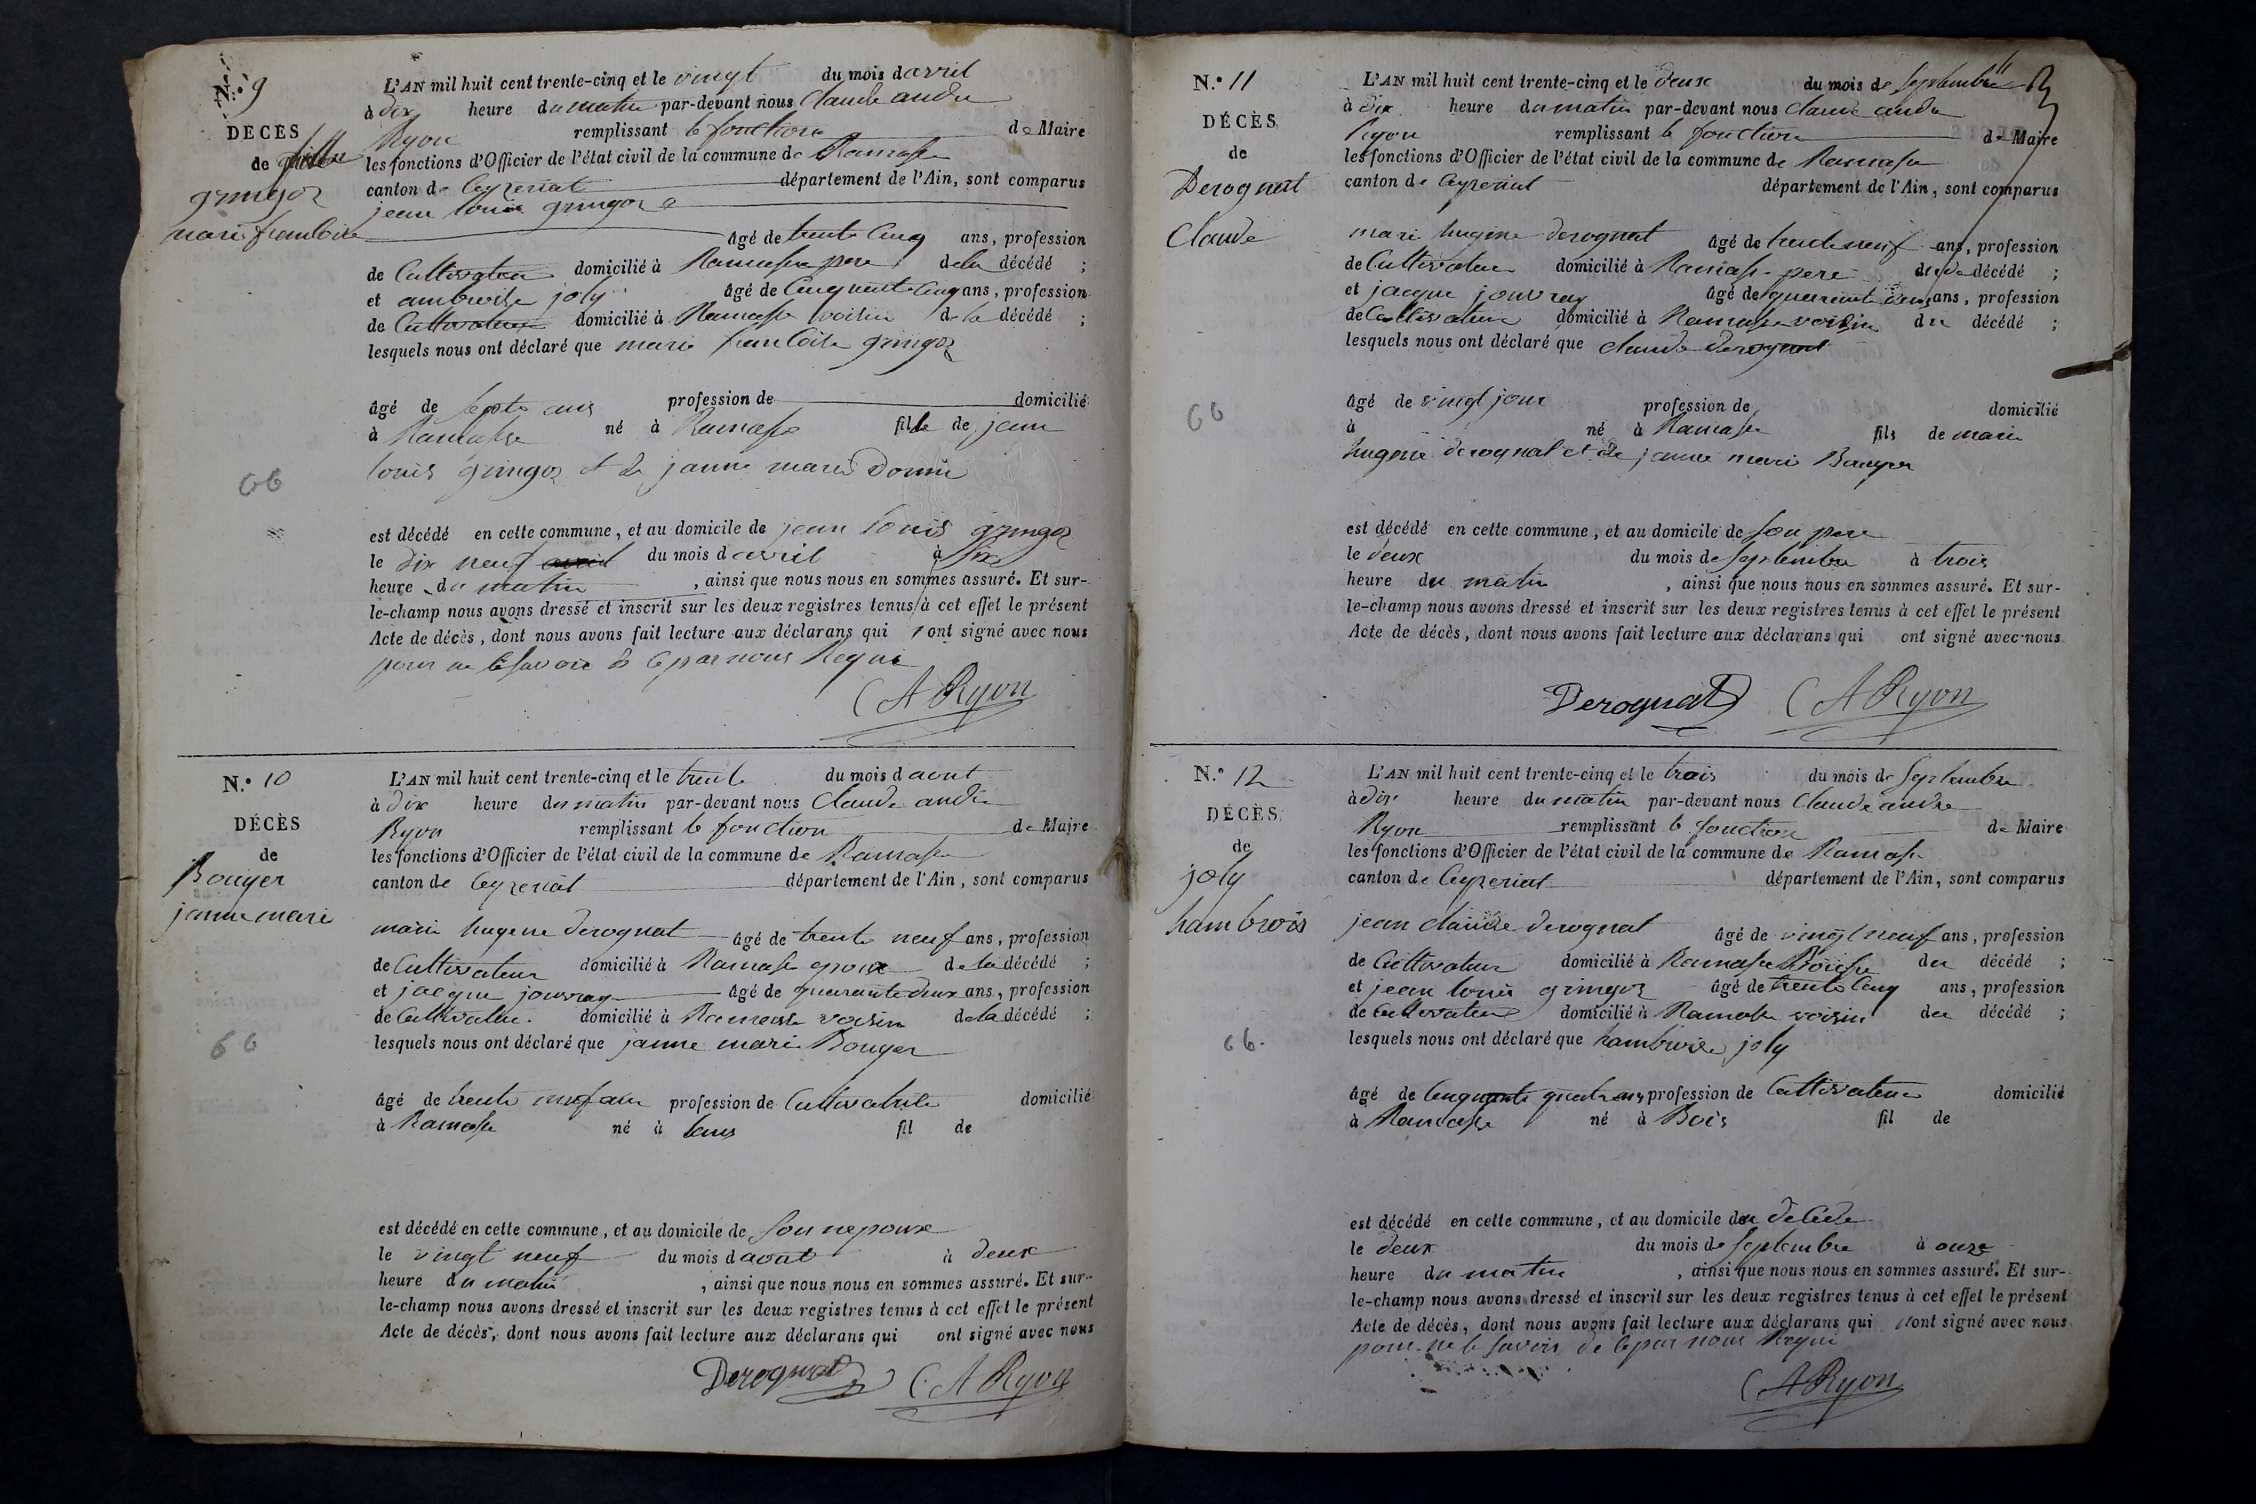 N.º 9
DECES
de
gringoz
marie francoise
L'AN mil huit cent trente-cinq et le vingt du mois d avril
à dix heure du matin par-devant nous Claude andre
Ryon remplissant le fonction de Maire
les fonctions d'Officier de l'état civil de la commune de Ramasse
canton de Ceyzeriat département de l'Ain, sont comparus
jean louis gringoz
âgé de trente Cinq ans, profession
de Cultivateur domicilié à Ramasse pere de la décédé ;
et ambroise joly âgé de Cinquente Cinq ans, profession
de Cultivateur domicilié à Ramasse voisin de la décédé ;
lesquels nous ont déclaré que marie francoise gringoz
âgé de septe ans profession de domicilié
à Ramasse né à Ramasse fille de jean
louis gringoz et de janne marie Domin
66
est décédé en cette commune, et au domicile de jean louis gringoz
le dix neuf avril du mois d avril à six
heure du matin, ainsi que nous nous en sommes assuré. Et sur-
le-champ nous avons dressé et inscrit sur les deux registres tenus à cet effet le présent
Acte de décès, dont nous avons fait lecture aux déclarans qui ont signé avec nous
pour ne le savoir de ce par nous Requi
C A Ryon
N.º 10
DÉCÈS
de
Bouyer
janne marie
L'AN mil huit cent trente-cinq et le trente du mois d aout
à dix heure du matin par-devant nous Claude andre
Ryon remplissant le fonction de Maire
les fonctions d'Officier de l'état civil de la commune de Ramasse
canton de Ceyzeriat département de l'Ain, sont comparus
marie hugene derognat âgé de trente neuf ans, profession
de Cultivateur domicilié à Ramasse epoux de la décédé ;
et jacque jouvray âgé de quarante deux ans, profession
de Cultivateur domicilié à Ramasse voisin de la décédé ;
lesquels nous ont déclaré que janne marie Bouyer
66
âgé de trente neuf ans profession de Cultivatrice domicilié
à Ramasse né à fil de
est décédé en cette commune, et au domicile de son nepoux
le vingt neuf du mois d aout à deux
heure du matin, ainsi que nous nous en sommes assuré. Et sur-
le-champ nous avons dressé et inscrit sur les deux registres tenus à cet effet le présent
Acte de décès, dont nous avons fait lecture aux déclarans qui ont signé avec nous
Derognat C A Ryon
N.º 11
DÉCÈS
de
Derognat
Claude
L'AN mil huit cent trente-cinq et le deux du mois de Septembre
à dix heure du matin par-devant nous claude andre
Ryon remplissant le fonction de Maire
les fonctions d'Officier de l'état civil de la commune de Ramasse
canton de Ceyzeriat département de l'Ain, sont comparus
marie hugene derognat âgé de trente neuf ans, profession
de Cultivateur domicilié à Ramasse pere du décédé ;
et jacque jouvray âgé de quarante deux ans, profession
de Cultivateur domicilié à Ramasse voisin du décédé ;
lesquels nous ont déclaré que claude derognat
66
âgé de vingt jour profession de domicilié
à né à Ramasse fils de marie
hugene derognat et de janne marie Bouyer
est décédé en cette commune, et au domicile de son pere
le deux du mois de Septembre à trois
heure du matin, ainsi que nous nous en sommes assuré. Et sur-
le-champ nous avons dressé et inscrit sur les deux registres tenus à cet effet le présent
Acte de décès, dont nous avons fait lecture aux déclarans qui ont signé avec nous
Derognat C A Ryon
N.º 12
DÉCÈS
de
joly
hambrois
L'AN mil huit cent trente-cinq et le trois du mois de Septembre
à dix heure du matin par-devant nous Claude andre
Ryon remplissant le fonction de Maire
les fonctions d'Officier de l'état civil de la commune de Ramasse
canton de Ceyzeriat département de l'Ain, sont comparus
jean claude derognat âgé de vingt neuf ans, profession
de Cultivateur domicilié à Ramasse du décédé ;
et jean louis gringoz âgé de trente Cinq ans, profession
de Cultivateur domicilié à Ramasse voisin du décédé ;
lesquels nous ont déclaré que hambroise joly
66.
âgé de Cinquante quatre ans profession de Cultivateur domicilié
à Ramasse né à fil de
est décédé en cette commune, et au domicile du decede
le deux du mois de Septembre à onze
heure du matin, ainsi que nous nous en sommes assuré. Et sur-
le-champ nous avons dressé et inscrit sur les deux registres tenus à cet effet le présent
Acte de décès, dont nous avons fait lecture aux déclarans qui ont signé avec nous
pour ne le savoir de ce par nous Requi
C A Ryon